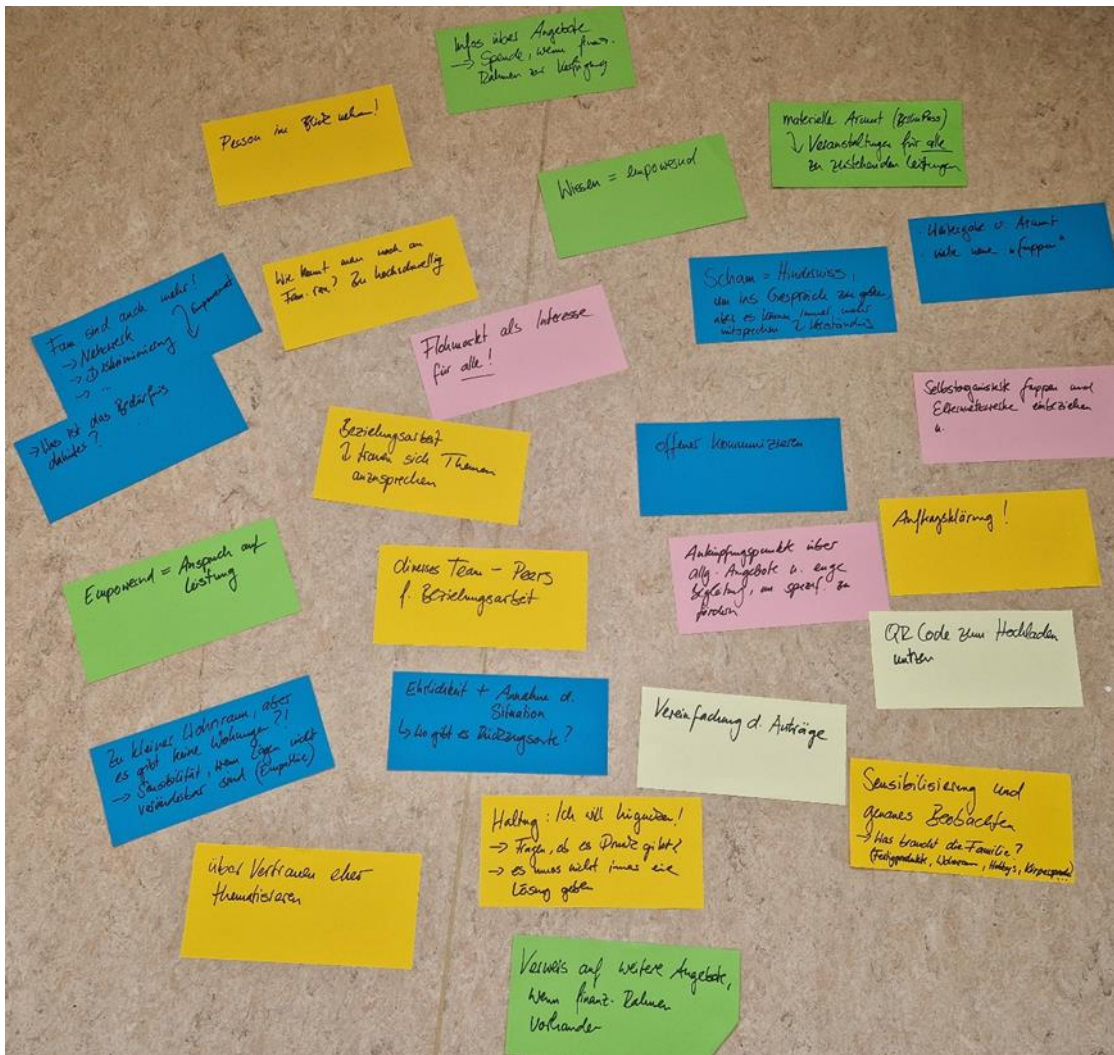 Infos über Angebote
→ Spende, wenn finanz.
Rahmen zur Verfügung
Person im Blick nehmen!
materielle Armut (BerlinPass)
↳ Veranstaltungen für alle
zu zustehenden Leistungen
Wissen = empowernd
Wie kommt man noch an
Fam. ran? Zu hochschwellig
Scham = Hindernis,
um ins Gespräch zu gehen,
aber es können immer mehr
mitsprechen
Verständnis
u. Armut
viele neue
Fam sind auch mehr!
→ Netzwerk
→ Diskriminierung
Empowerment
→ ..
→ Was ist das Bedürfnis
dahinter?
Flohmarkt als Interesse
für alle!
Selbstorganisierte Gruppen und
Elternnetzwerke einbeziehen
u.
Beziehungsarbeit
↳ trauen sich Themen
anzusprechen
offener kommunizieren
Auftragsklärung!
Empowernd = Anspruch auf
Leistung
diverses Team – Peers
f. Beziehungsarbeit
Anknüpfungspunkte über
allg. Angebote u. enge
Begleitung, um spezif. zu
fördern
QR Code zum Hochladen
nutzen
Zu kleiner Wohnraum, aber
es gibt keine Wohnungen?!
→ Sensibilität, wenn Lagen nicht
veränderbar sind (Empathie)
Ehrlichkeit + Annahme d.
Situation
↳ Wo gibt es Rückzugsorte?
Vereinfachung d. Anträge
Sensibilisierung und
genaues Beobachten
→ Was braucht die Familie?
(Fertigprodukte, Wohnraum, Hobbys, Körpersprache
über Vertrauen eher
thematisieren
Haltung: Ich will hingucken!
→ Fragen, ob es Druck gibt?
→ es muss nicht immer eine
Lösung geben
Verweis auf weitere Angebote,
wenn finanz. Rahmen
vorhanden